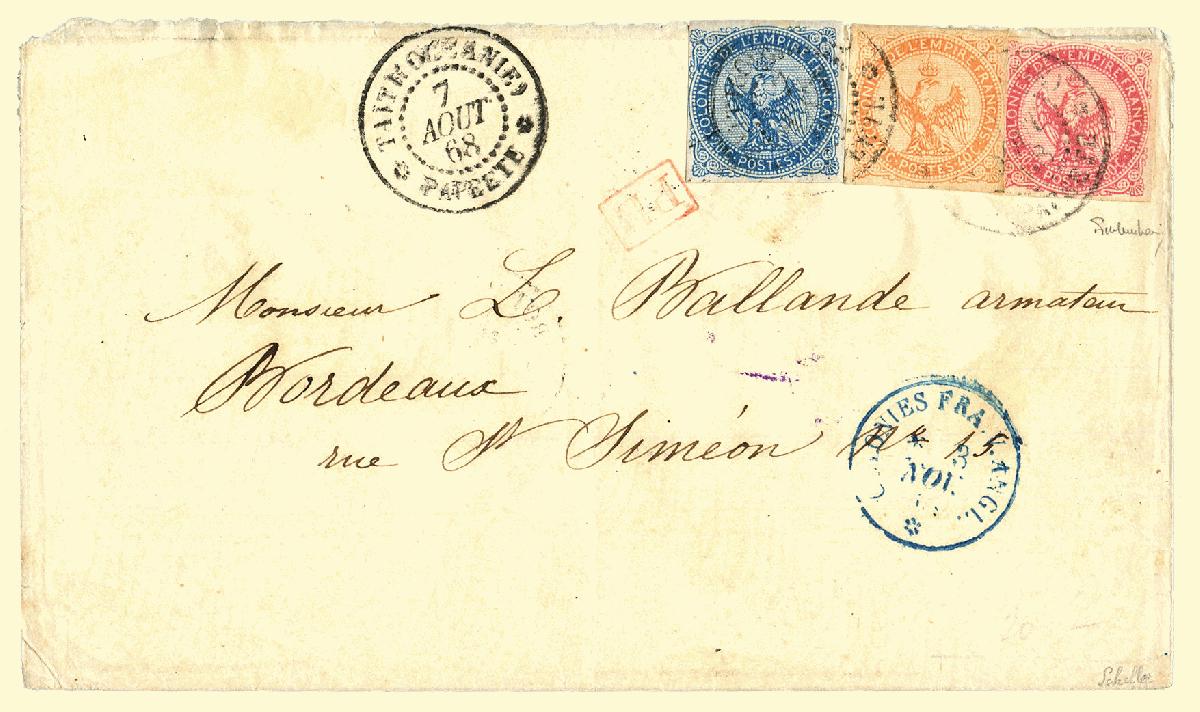 TAITI (OCEANIE)
7
AOUT
68
PAPEETE
COLONIES DE L'EMPIRE FRANÇAIS
POSTES
COLONIES DE L'EMPIRE FRANÇAIS
C. POSTES. 40 C.
COLONIES DE L'EMPIRE FRANÇAIS
POSTES
Monsieur L. Ballande armateur
Bordeaux
rue St Siméon No 15
COLONIES FRA. V. ANGL.
8
NOV.